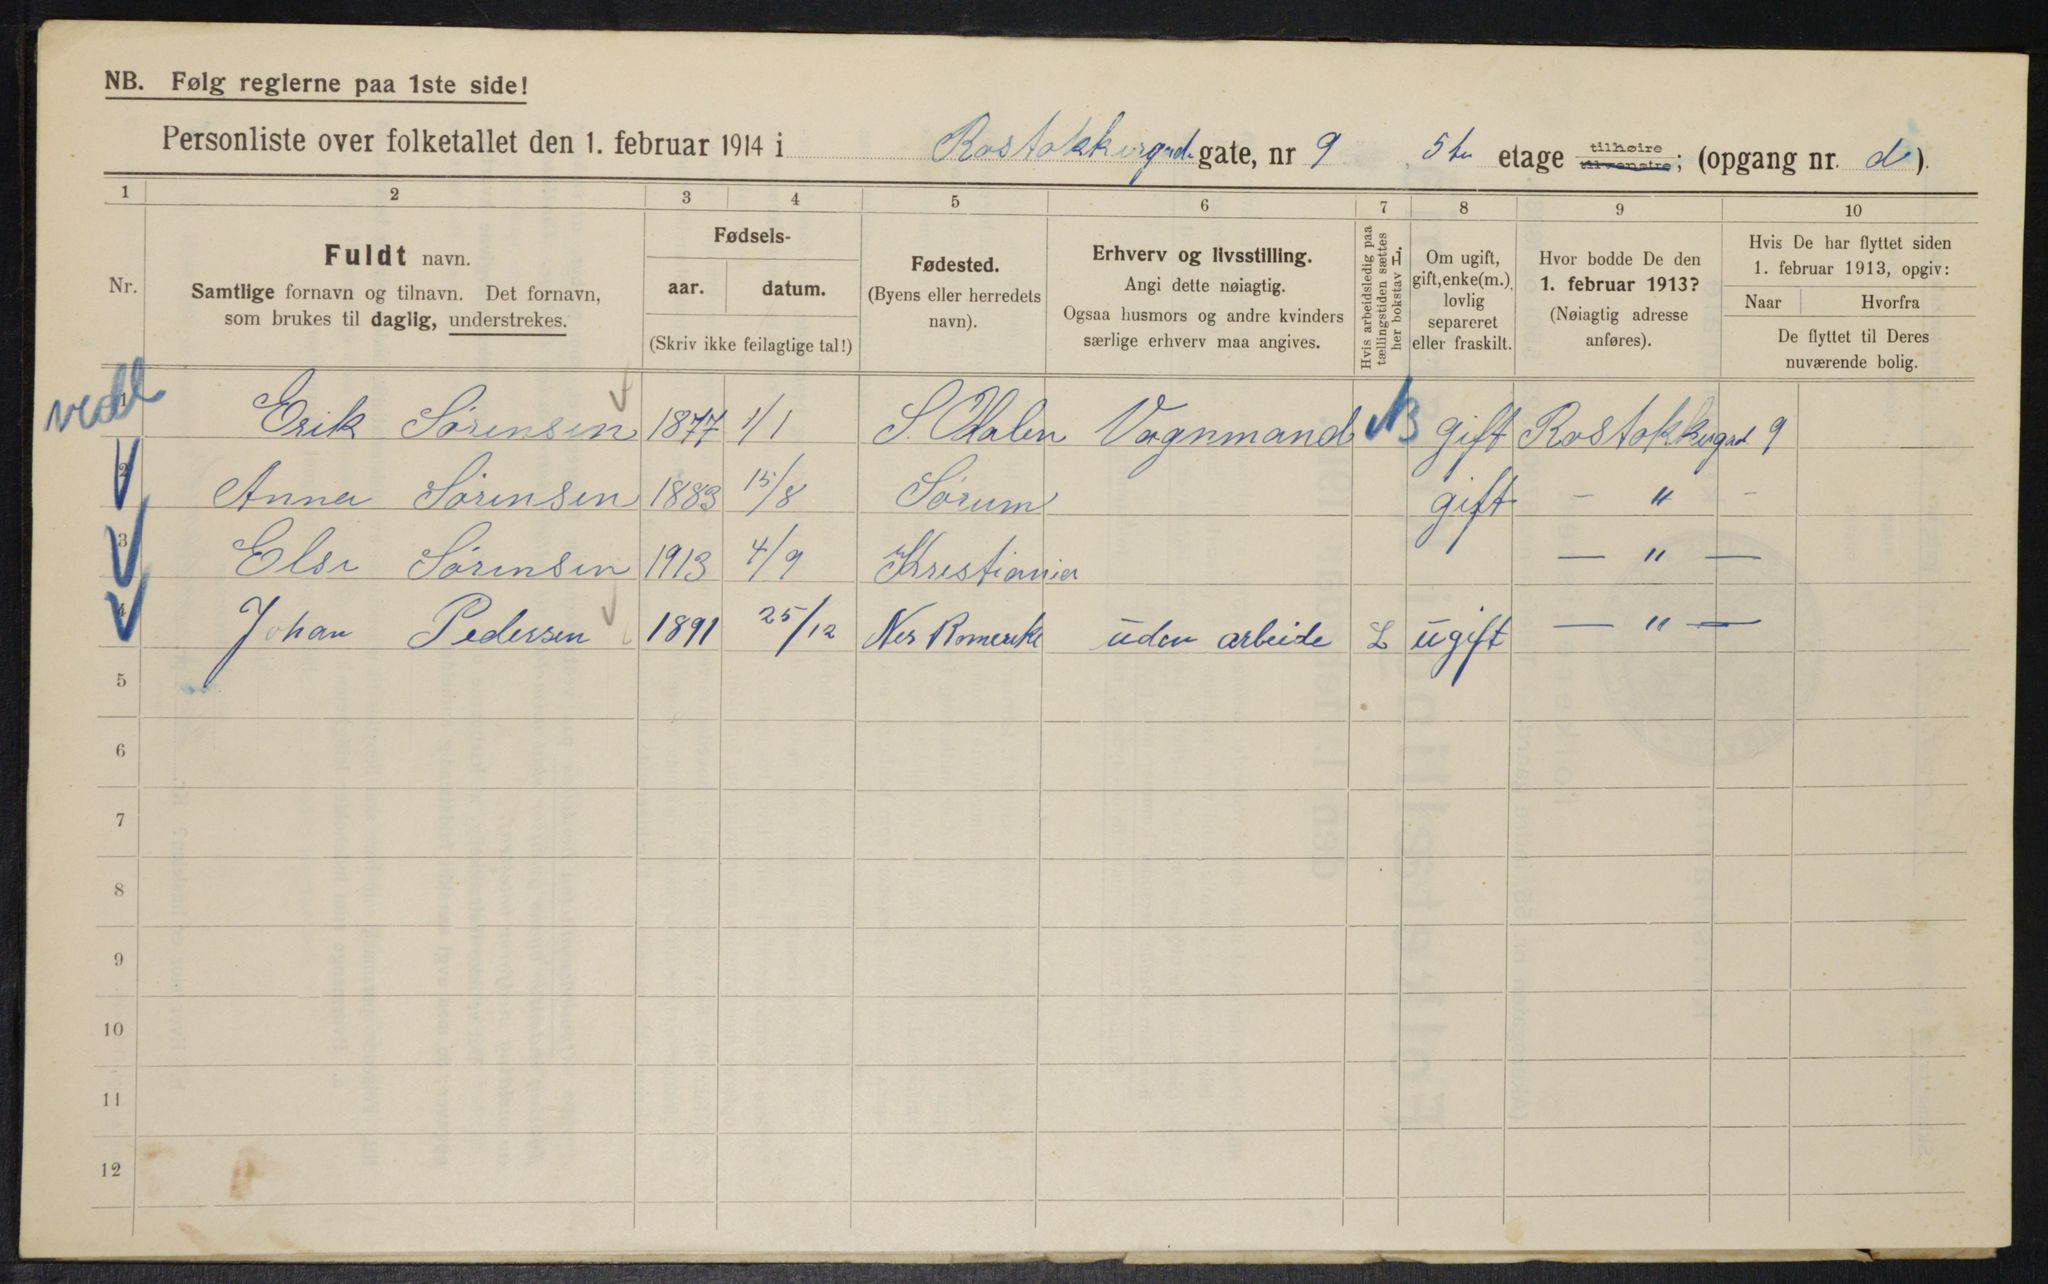 NB. Følg reglerne paa 1ste side!
Personliste over folketallet den 1. februar 1914 i Rostokkergade gate, nr 9 5te etage tilhøire tilvenstre; (opgang nr. d).
1 2 3 4 5 6 7 8 9 10
Nr.
Fuldt navn.
Samtlige fornavn og tilnavn. Det fornavn,
som brukes til daglig, understrekes.
Fødsels-
aar. datum.
(Skriv ikke feilagtige tal!)
Fødested.
(Byens eller herredets
navn).
Erhverv og livsstilling.
Angi dette nøiagtig.
Ogsaa husmors og andre kvinders
særlige erhverv maa angives.
Hvis arbeidsledig paa
tællingstiden sættes
her bokstav L.
Om ugift,
gift, enke(m.),
lovlig
separeret
eller fraskilt.
Hvor bodde De den
1. februar 1913?
(Nøiagtig adresse
anføres).
Hvis De har flyttet siden
1. februar 1913, opgiv:
Naar Hvorfra
De flyttet til Deres
nuværende bolig.
1 Erik Sørensen 1877 1/1 S. Odalen Vognmand gift Rostokkergad 9
2 Anna Sørensen 1883 15/8 Sørum gift - " -
3 Else Sørensen 1913 4/9 Kristiania — " —
4 Johan Pedersen 1891 25/12 Nes Romerike uden arbeide L ugift — " —
5
6
7
8
9
10
11
12